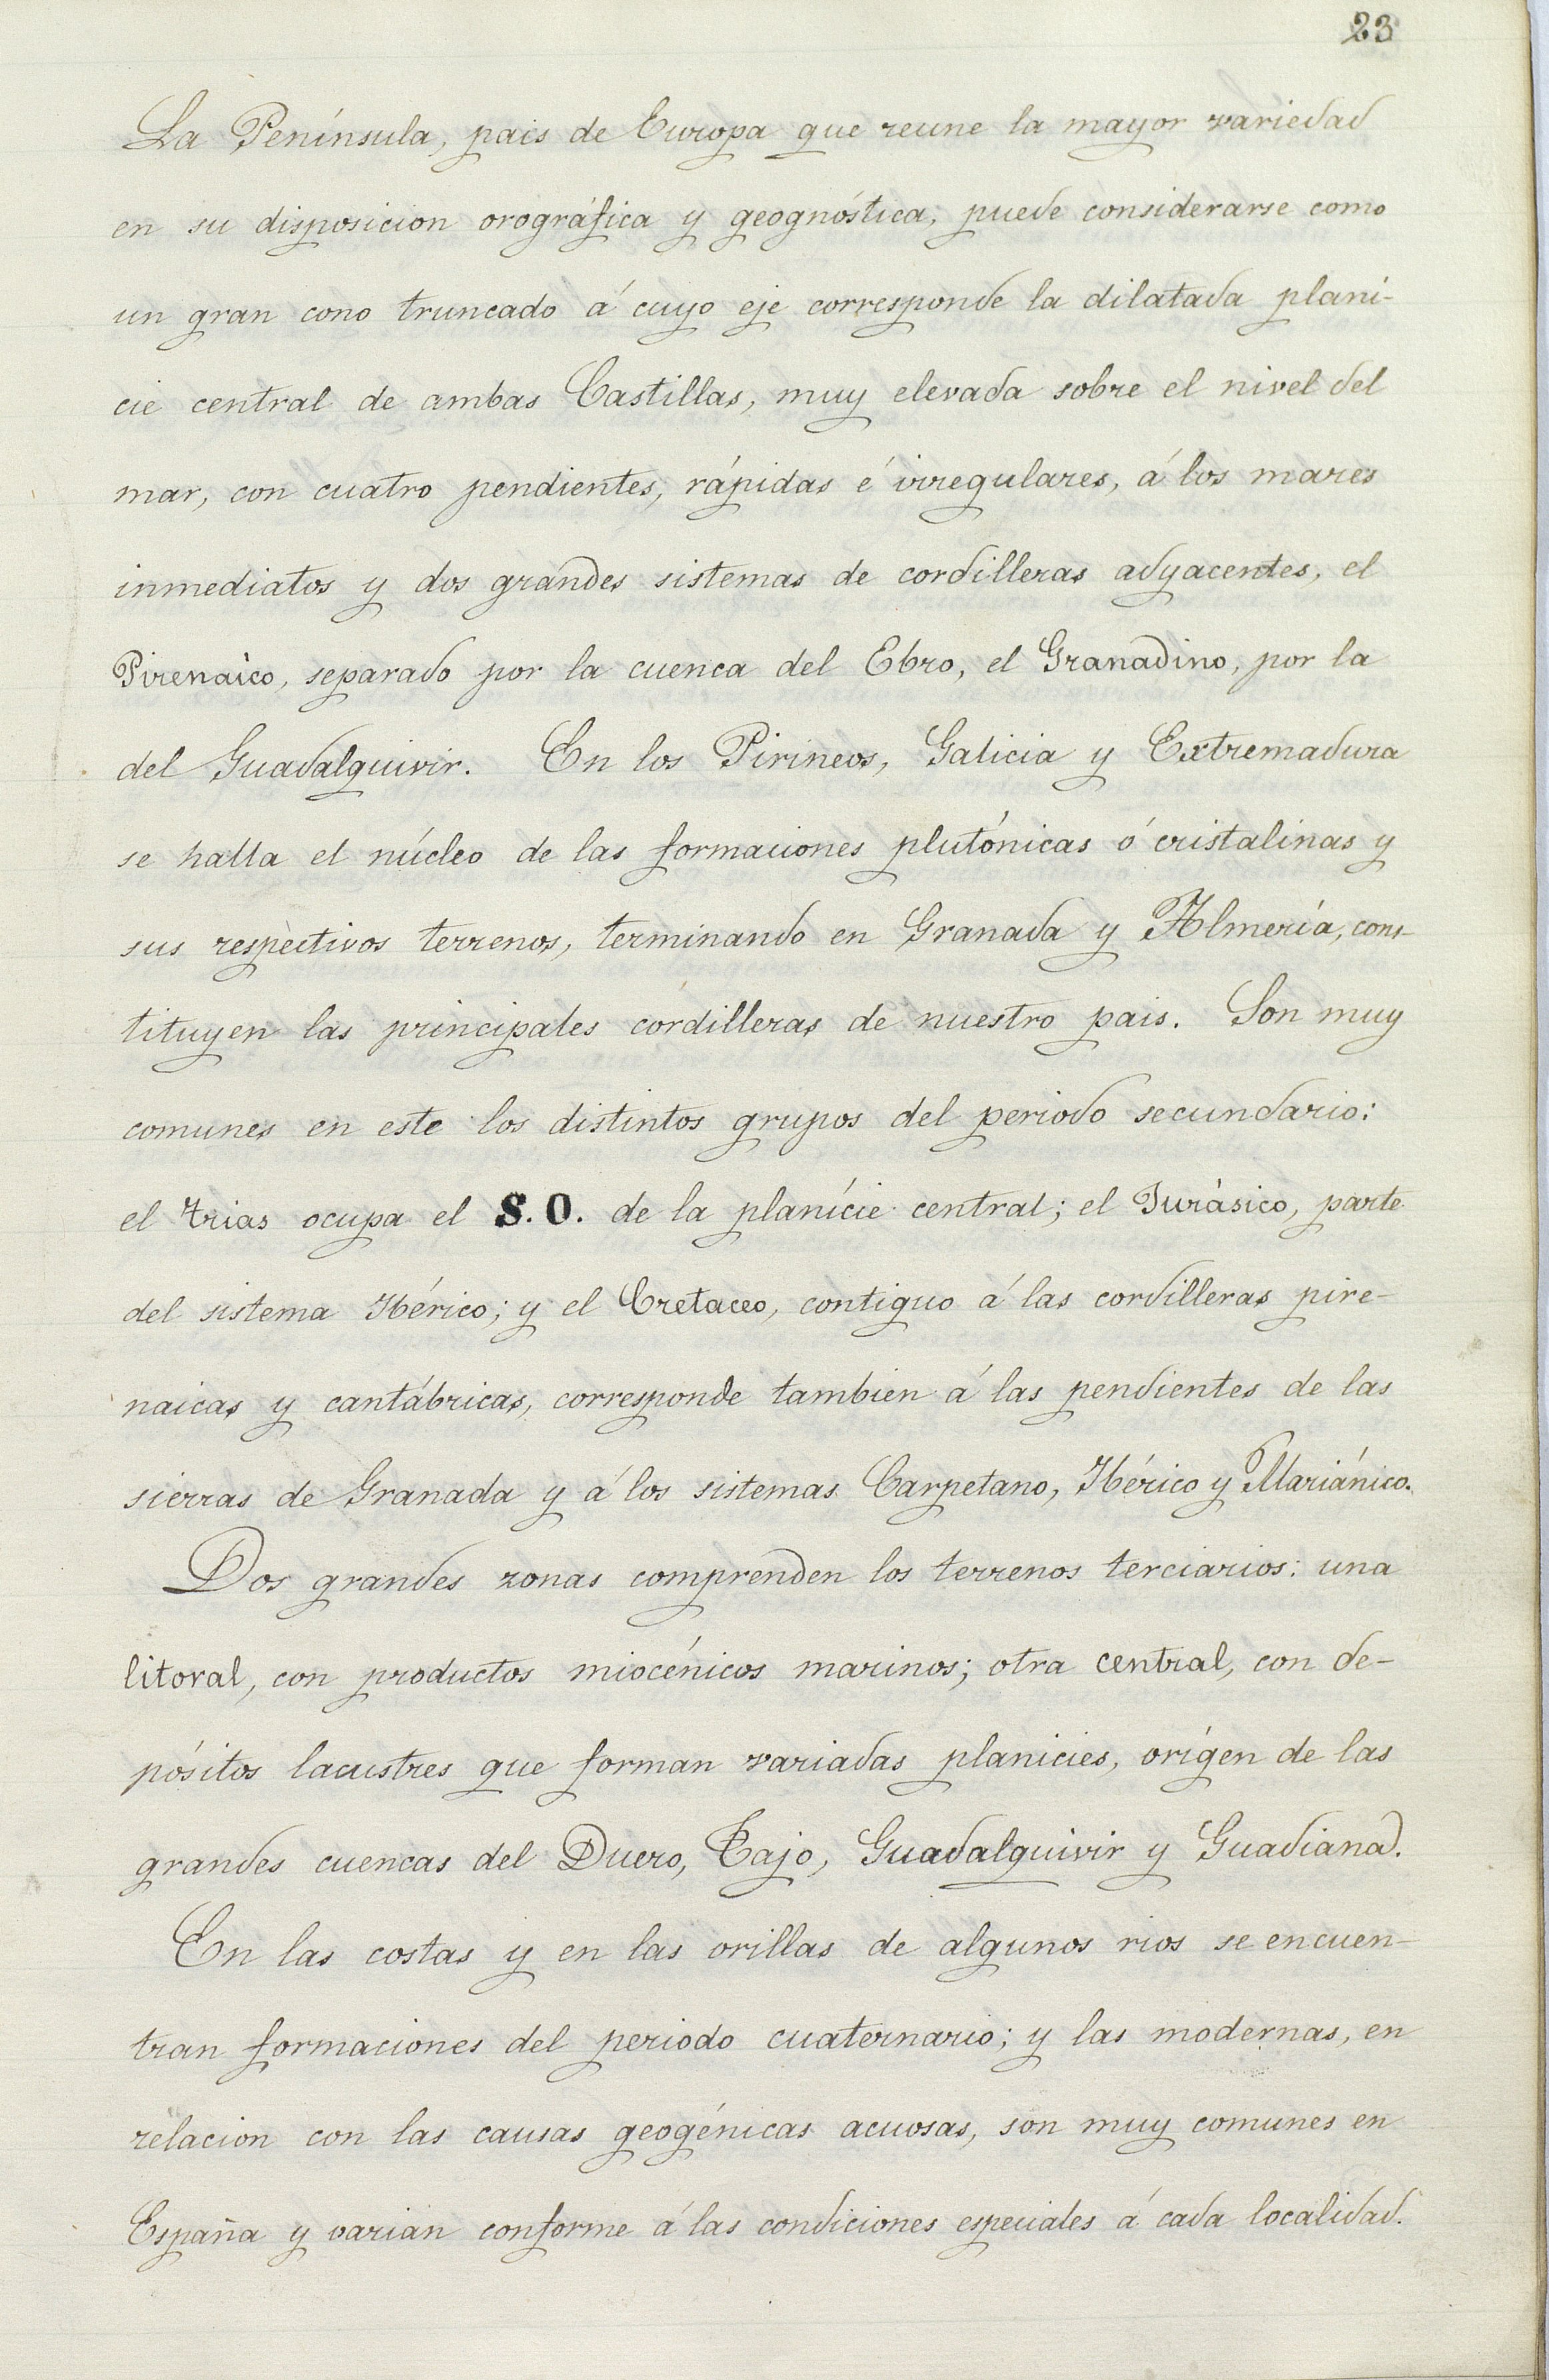 23
La Península, pais de Europa que reune la mayor variedad
en su disposicion orográfica y geognóstica, puede considerarse como
un gran cono truncado á cuyo eje corresponde la dilatada plani-
cie central de ambas Castillas, muy elevada sobre el nivel del
mar, con cuatro pendientes, rápidas é irregulares, á los mares
inmediatos y dos grandes sistemas de cordilleras adyacentes, el
Pirenaico, separado por la cuenca del Ebro, el Granadino, por la
del Guadalquivir. En los Pirineos, Galicia y Extremadura
se halla el núcleo de las formaciones plutónicas ó cristalinas y
sus respectivos terrenos, terminando en Granada y Almería, cons-
tituyen las principales cordilleras de nuestro pais. Son muy
comunes en este los distintos grupos del periodo secundario:
el trias ocupa el S. O. de la planície central; el Jurásico, parte
del sistema Ibérico; y el Cretaceo, contiguo á las cordilleras pire-
naicas y cantábricas, corresponde tambien á las pendientes de las
sierras de Granada y á los sistemas Carpetano, Ibérico y Mariánico.
Dos grandes zonas comprenden los terrenos terciarios: una
litoral, con productos miocénicos marinos; otra central, con de-
pósitos lacustres que forman variadas planicies, orígen de las
grandes cuencas del Duero, Tajo, Guadalquivir y Guadiana.
En las costas y en las orillas de algunos rios se encuen-
tran formaciones del periodo cuaternario; y las modernas, en
relacion con las causas geogénicas acuosas, son muy comunes en
España y varian conforme á las condiciones especiales á cada localidad.